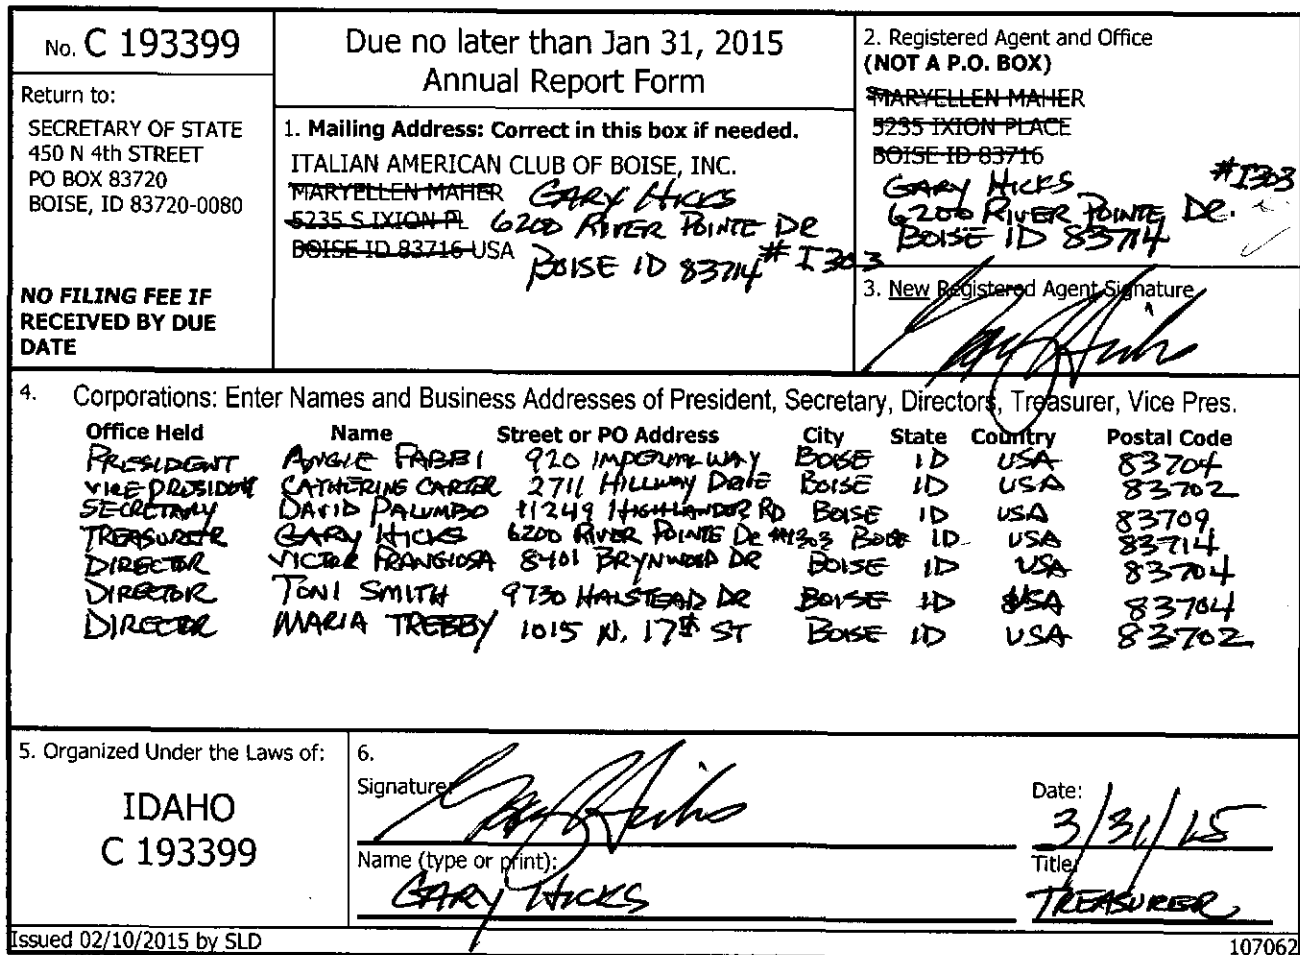 No. C 193399
Return to:
SECRETARY OF STATE
450 N 4th STREET
PO BOX 83720
BOISE, ID 83720-0080
NO FILING FEE IF
RECEIVED BY DUE
DATE
Due no later than Jan 31, 2015
Annual Report Form
1. Mailing Address: Correct in this box if needed.
ITALIAN AMERICAN CLUB OF BOISE, INC.
MARYELLEN MAHER GARY HICKS
5235 S IXION PL 6200 RIVER POINTE DR
BOISE ID 83716 USA BOISE ID 83714 #I303
2. Registered Agent and Office
(NOT A P.O. BOX)
MARYELLEN MAHER
5235 IXION PLACE
BOISE ID 83716
GARY HICKS #I303
6200 RIVER POINTE DR.
BOISE ID 83714
3. New Registered Agent Signature
Gary Hicks
4. Corporations: Enter Names and Business Addresses of President, Secretary, Directors, Treasurer, Vice Pres.
Office Held Name Street or PO Address City State Country Postal Code
PRESIDENT ANGIE FABBI 920 IMPERIAL WAY BOISE ID USA 83704
VICE PRESIDENT CATHERINE CARTER 2711 HILLWAY DRIVE BOISE ID USA 83702
SECRETARY DAVID PALUMBO 11249 HIGHLANDER RD BOISE ID USA 83709
TREASURER GARY HICKS 6200 RIVER POINTE DR #I303 BOISE ID USA 83714
DIRECTOR VICTOR FRANGIOSA 8401 BRYNWOOD DR BOISE ID USA 83704
DIRECTOR TONI SMITH 9730 HALSTEAD DR BOISE ID USA 83704
DIRECTOR MARIA TREBBY 1015 N. 17th ST BOISE ID USA 83702
5. Organized Under the Laws of:
IDAHO
C 193399
6.
Signature: Gary Hicks
Name (type or print):
GARY HICKS
Date:
3/31/15
Title:
TREASURER
Issued 02/10/2015 by SLD
107062